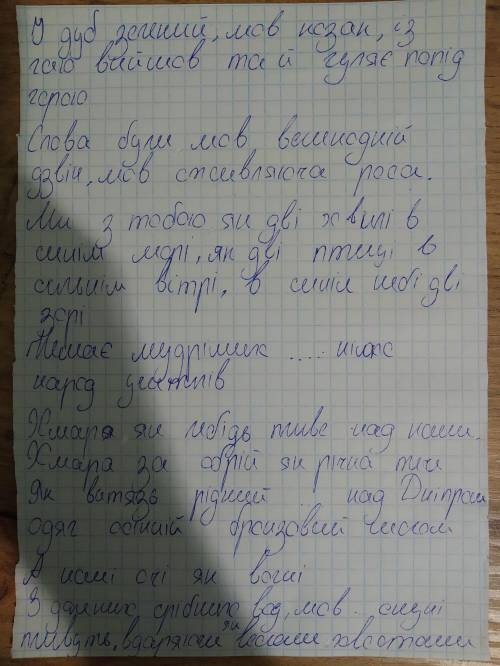 І дуб зелений, мов козак, із
гаю вийшов та й гуляє попід
горою
Слова були мов великодній
дзвін, мов оживляюча роса.
Ми з тобою як дві хвилі в
синім морі, як дві птиці в
сильнім вітрі, в синім небі дві
зорі
Немає мудріших .... ніж
народ учитилів
Хмара як лебідь пливе над нами.
Хмара за обрій як річка тече
Як витязь рідний над Дніпром
одяг осінній бронзовий шолом
А накі очі як вогні
З дзвінких срібних вод, мов
пливуть, вдаряючи хвостами